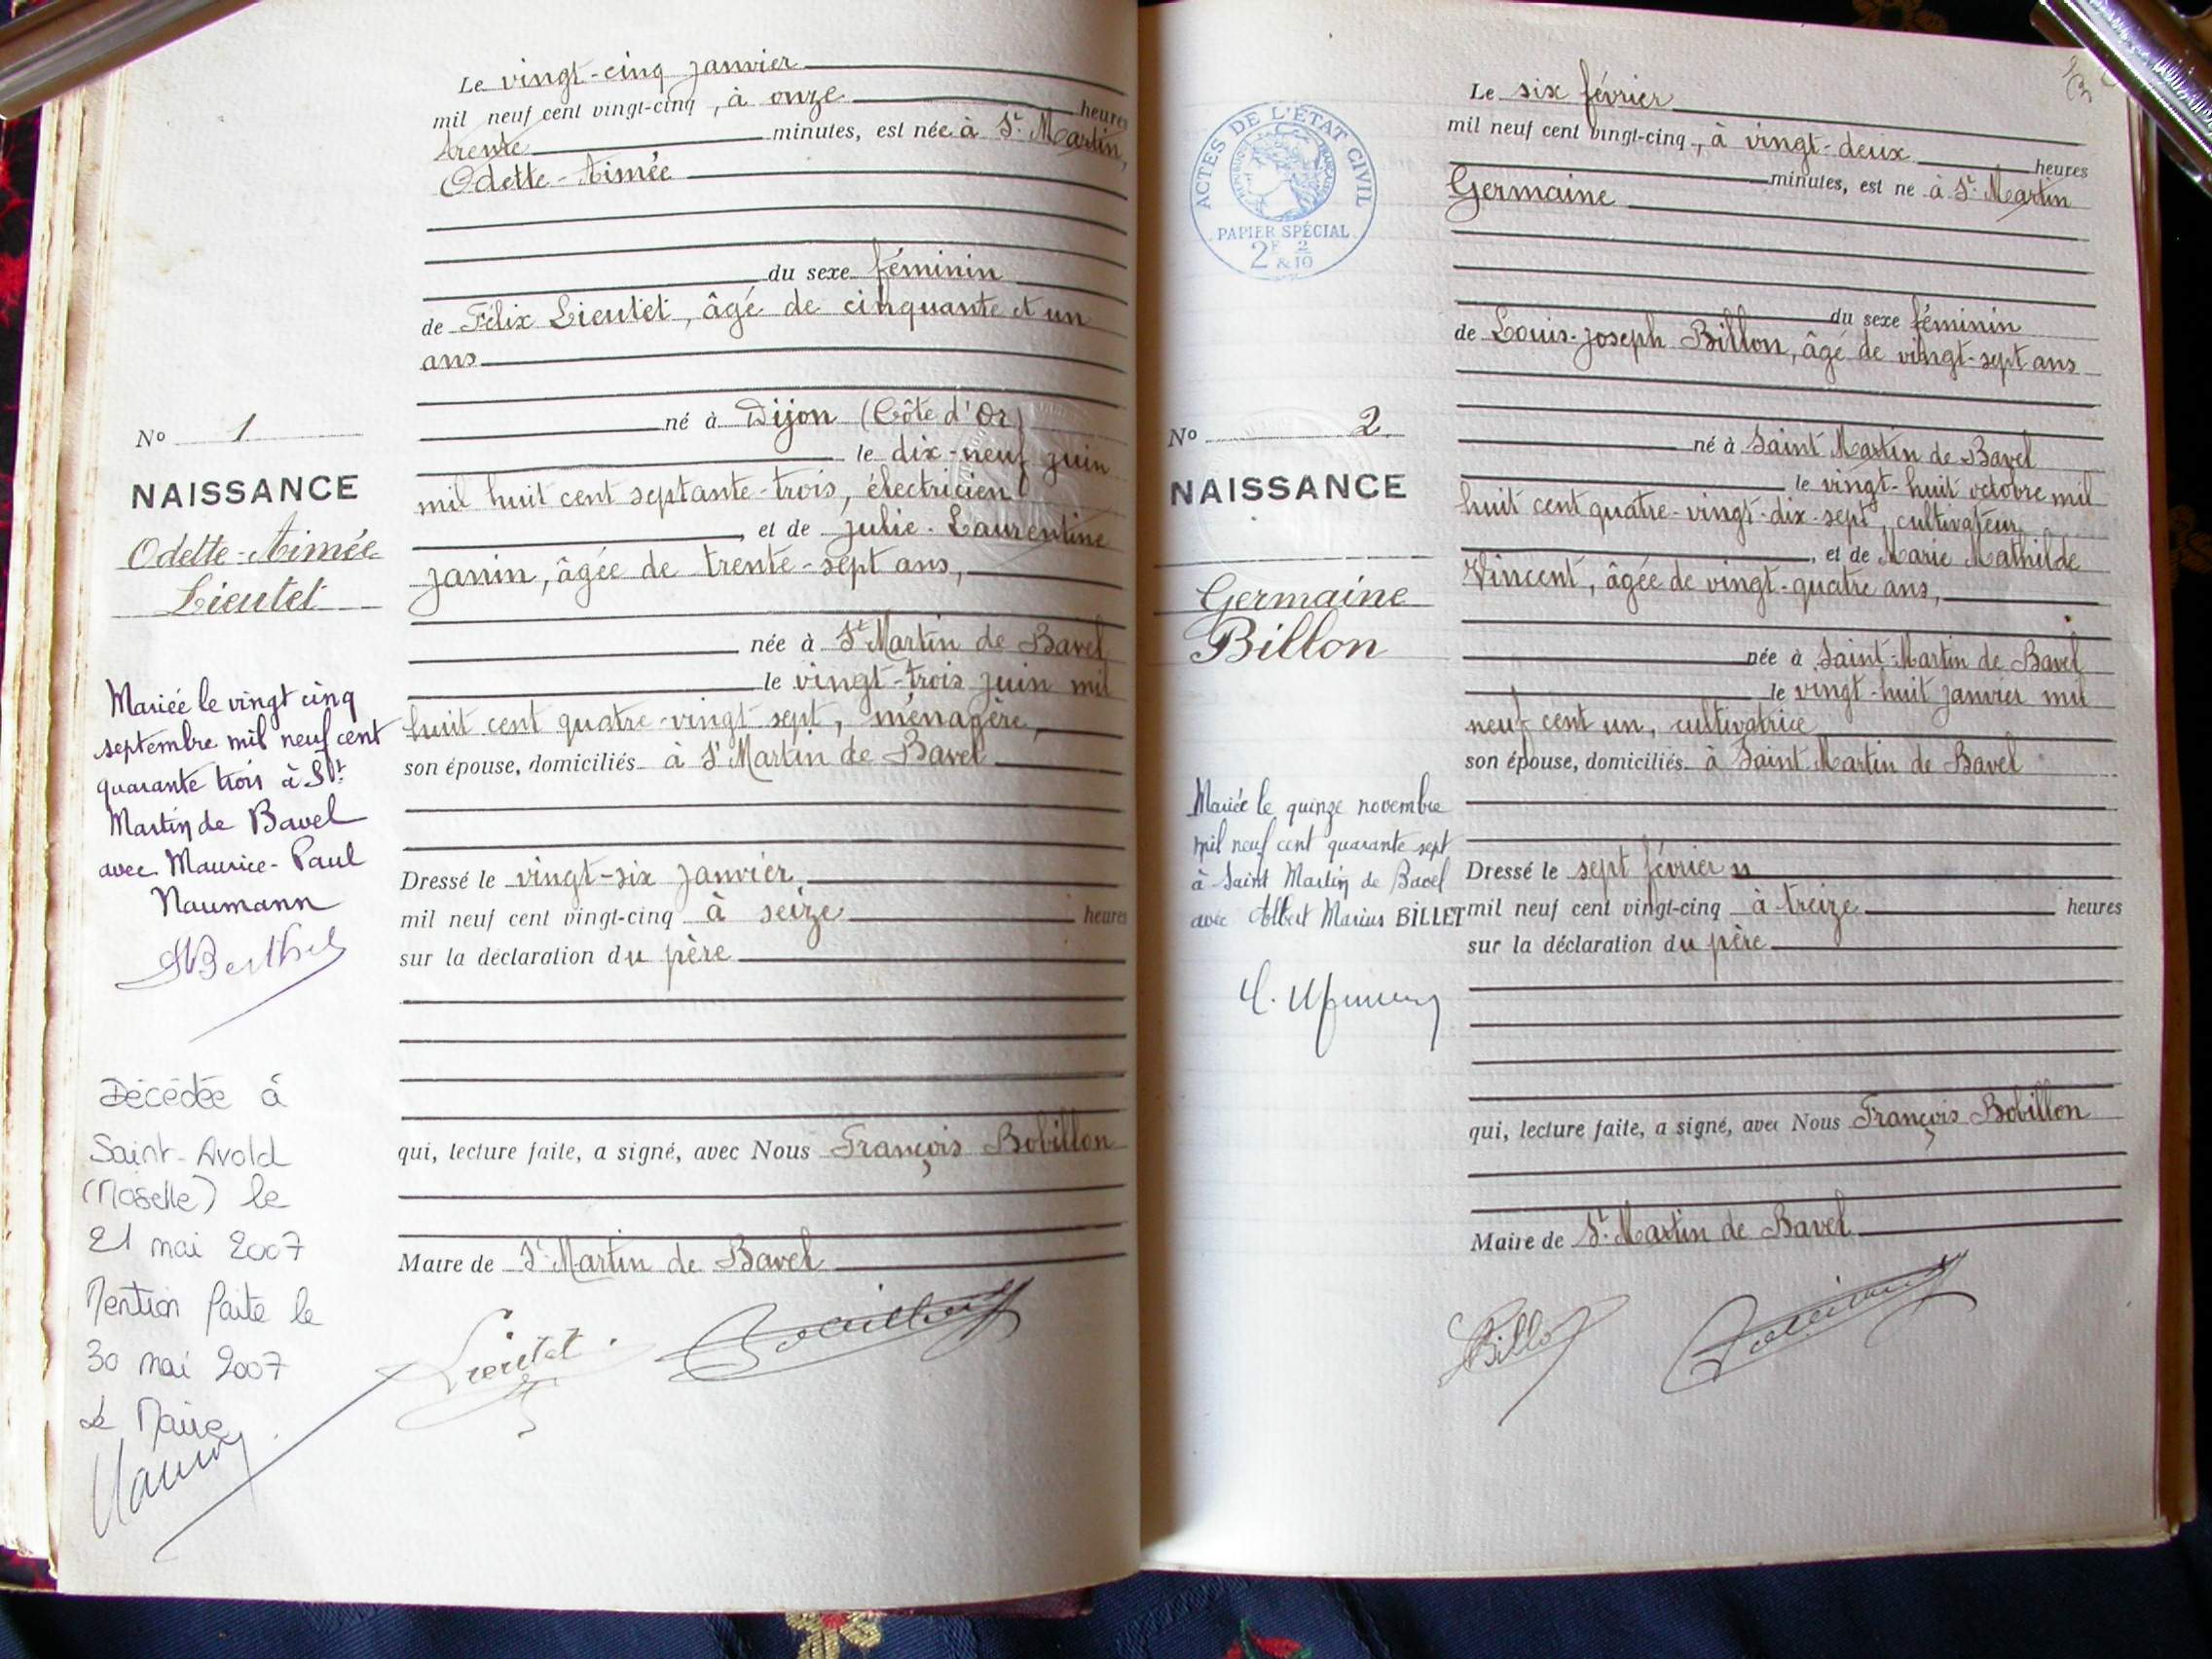 Le vingt-cinq janvier
mil neuf cent vingt-cinq, à onze heures
trente minutes, est née à St Martin,
Odette-Aimée
du sexe féminin
de Félix Lieutet, âgé de cinquante et un
ans
né à Dijon (Côte d'Or)
le dix-neuf juin
mil huit cent septante-trois, électricien
, et de Julie-Laurentine
Janin, âgée de trente-sept ans,
née à St Martin de Bavel
le vingt-trois juin mil
huit cent quatre-vingt sept, ménagère,
son épouse, domiciliés à St Martin de Bavel
Dressé le vingt-six janvier
mil neuf cent vingt-cinq à seize heures
sur la déclaration du père
qui, lecture faite, a signé, avec Nous François Bobillon
Maire de St Martin de Bavel
Lieutet
No 1
NAISSANCE
Odette-Aimée
Lieutet
Mariée le vingt cinq
septembre mil neuf cent
quarante trois à St
Martin de Bavel
avec Maurice-Paul
Naumann
Décédée à
Saint-Avold
(Moselle) le
21 mai 2007
Mention faite le
30 mai 2007
Le Maire
ACTES DE L'ÉTAT CIVIL
PAPIER SPÉCIAL
2F 2
& 10
Le six février
mil neuf cent vingt-cinq, à vingt-deux heures
minutes, est né à St Martin
Germaine
du sexe féminin
de Louis-Joseph Billon, âgé de vingt-sept ans
né à Saint Martin de Bavel
le vingt-huit octobre mil
huit cent quatre-vingt-dix-sept, cultivateur
, et de Marie Mathilde
Vincent, âgée de vingt-quatre ans,
née à Saint-Martin de Bavel
le vingt-huit janvier mil
neuf cent un, cultivatrice
son épouse, domiciliés à Saint Martin de Bavel
Dressé le sept février
mil neuf cent vingt-cinq à treize heures
sur la déclaration du père
qui, lecture faite, a signé, avec Nous François Bobillon
Maire de St Martin de Bavel
Billon
No 2
NAISSANCE
Germaine
Billon
Mariée le quinze novembre
mil neuf cent quarante sept
à Saint Martin de Bavel
avec Albert Marius BILLET